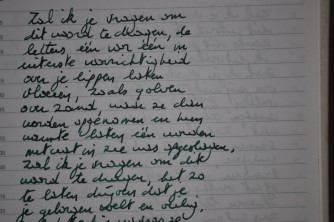 Zal ik je vragen om
dit woord te dragen, de
letters één voor één in
uiterste voorzichtigheid
over je lippen laten
vloeien, zoals golven
over zand, waar ze dan
worden opgenomen en hun
warmte laten één worden
met wat in zee was
Zal ik je vragen om dit
woord te dragen, het zo
te laten dat je
je geborgen voelt en veilig,